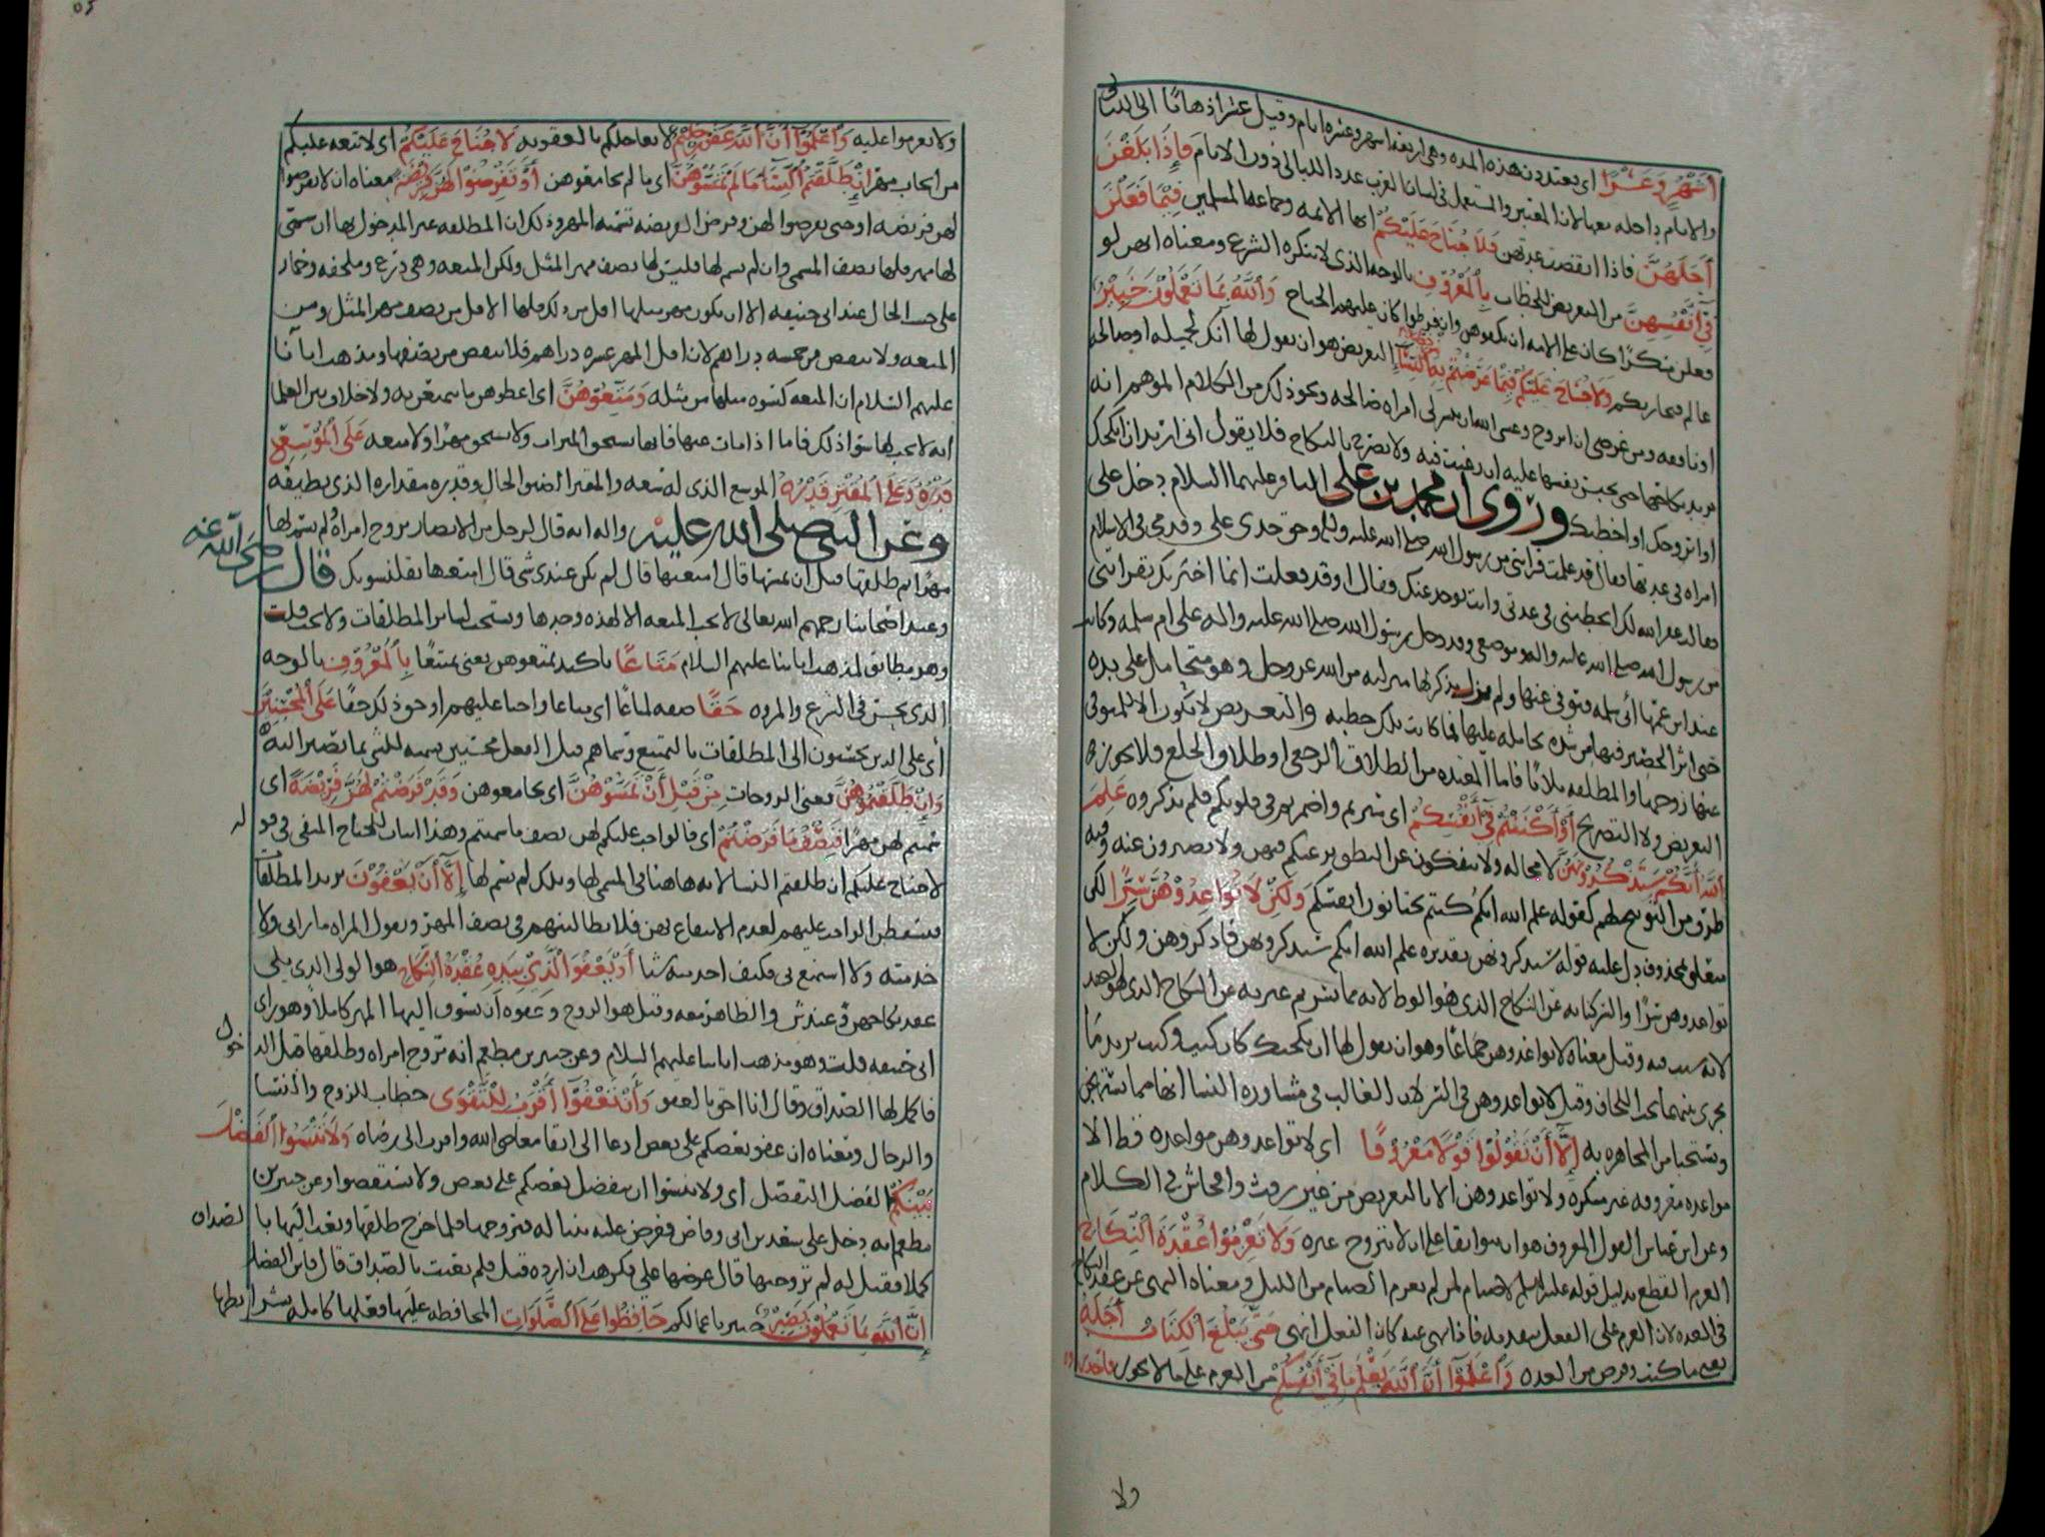 أشهر وعشرا أي يعتددن هذه المده وهي اربعه اشهر وعشره ايام وقيل عشرا ذهابا الى الليالي
والايام داخله معها لان المعتبر والمستعمل في لسان العرب عدد الليالي دون الايام فإذا بلغن
أجلهن فاذا انقضت عدتهن فلا جناح عليكم ايها الائمه وجماعه المسلمين فيما فعلن
في أنفسهن من التعريض للخطاب بالمعروف بالوجه الذي لا ينكره الشرع ومعناه انهن لو
فعلن منكرا كان على الائمه ان يكفوهن وان فرطوا كان عليهم الجناح والله بما تعملون خبير
عالم فيجازيكم ولا جناح عليكم فيما عرضتم به من خطبة النساء التعريض هو ان يقول لها انك لجميله او صالحه
او نافعه ومن غرضي ان اتزوج وعسى الله ان ييسر لي امراه صالحه ونحو ذلك من الكلام الموهم انه
يريد نكاحها حتى تحبس نفسها عليه ان رغبت فيه ولا يصرح بالنكاح فلا يقول اني اريد ان انكحك
او اتزوجك او اخطبك وروى ان محمد بن علي الباقر عليهما السلام دخل على
امراه في عدتها فقال قد علمت قرابتي من رسول الله صلى الله عليه وسلم وحق جدي علي وقدمي في الاسلام
فقالت غفر الله لك اتخطبني في عدتي وانت يوخذ عنك فقال اوقد فعلت انما اخبرتك بقرابتي
من رسول الله صلى الله عليه واله وموضعي وقد دخل رسول الله صلى الله عليه واله على ام سلمه وكانت
عند ابن عمها ابي سلمه فتوفي عنها ولم يزل يذكر لها منزلته من الله عز وجل وهو متحامل على يده
حتى اثر الحصير فيها من شده تحامله عليها فما كانت تلك خطبه والتعريض لا يكون الا للمتوفى
عنها زوجها والمطلقه ثلاثا فاما المعتده من الطلاق الرجعي او طلاق الخلع فلا يجوز
التعريض ولا التصريح أو أكننتم في أنفسكم اي سترتم واضمرتم في قلوبكم فلم تذكروه علم
الله أنكم ستذكرونهن لا محاله ولا تنفكون عن النطق برغبتكم فيهن ولا تصبرون عنه وفيه
طرف من التوبيخ لهم كقوله علم الله انكم كنتم تختانون انفسكم ولكن لا تواعدوهن سرا لكن
متعلق بمحذوف دل عليه قوله ستذكرونهن تقديره علم الله انكم ستذكرونهن فاذكروهن ولكن لا
تواعدوهن سرا والسر كنايه عن النكاح الذي هو الوطا لانه مما يسر ثم عبر به عن النكاح الذي هو العقد
لانه سبب فيه وقيل معناه لا تواعدوهن جماعا وهو ان يقول لها ان نكحتك كان كيت وكيت يريد ما
يجري بينهما تحت اللحاف وقيل لا تواعدوهن في السر لان الغالب في مشاوره النسا انها مما يستهجن
ويستحيا من المجاهره به إلا أن تقولوا قولا معروفا اي لا تواعدوهن مواعده قط الا
مواعده معروفه غير منكره ولا تواعدوهن الا بالتعريض من غير رفث وافحاش في الكلام
وعن ابن عباس القول المعروف هو ان يتواثقا على ان لا تتزوج غيره ولا تعزموا عقدة النكاح
العزم القطع بدليل قوله عليه السلم لا صيام لمن لم يعزم الصيام من الليل ومعناه النهي عن عقد النكاح
في العده لان العزم على الفعل يتقدمه فاذا نهي عنه كان الفعل انهى حتى يبلغ الكتاب أجله
يعني ما كتب وفرض من العده واعلموا أن الله يعلم ما في أنفسكم من العزم على ما لا يجوز فاحذروه
ولا
ولا تعزموا عليه واعلموا أن الله غفور حليم لا يعاجلكم بالعقوبه لا جناح عليكم اي لا تبعه عليكم
من ايجاب مهر إن طلقتم النساء ما لم تمسوهن اي ما لم تجامعوهن أو تفرضوا لهن فريضة معناه ان لا تفرضوا
لهن فريضه او حتى تفرضوا لهن وفرض الفريضه تسميه المهر وذلك ان المطلقه غير المدخول بها ان سمي
لها مهر فلها نصف المسمى وان لم يسم لها فليس لها نصف مهر المثل ولكن المتعه وهي درع وملحفه وخمار
على حسب الحال عند ابي حنيفه الا ان يكون مهر مثلها اقل من ذلك فلها الاقل من نصف مهر المثل ومن
المتعه ولا ينقص من خمسه دراهم لان اقل المهر عشره دراهم فلا ينقص من نصفها ومذهب ابآئنا
عليهم السلام ان المتعه كسوه مثلها من مثله ومتعوهن اي اعطوهن ما يتمتعن به ولا خلاف بين العلما
انه لا يجب لها سوا ذلك فاما اذا مات عنها فانها تستحق الميراث ولا تستحق مهرا ولا متعه على الموسع
قدره وعلى المقتر قدره الموسع الذي له سعه والمقتر الضيق الحال وقدره مقداره الذي يطيقه
وعن النبي صلى الله عليه واله انه قال لرجل من الانصار تزوج امراة لم يسم لها
مهرا ثم طلقها قبل ان يمسها قال امتعتها قال لم يكن عندي شي قال امتعها بقلنسوتك قال رضى الله عنه
وعند اصحابنا رحمهم الله تعالى لا تجب المتعه الا لهذه وحدها وتستحب لسائر المطلقات ولا تجب قلت
وهو مطابق لمذهب ابائنا عليهم السلام متاعا تاكيد لمتعوهن يعني تمتيعا بالمعروف بالوجه
الذي يحسن في الشرع والمروه حقا صفه لمتاعا اي متاعا واجبا عليهم او حق ذلك حقا على المحسنين
أي على الذين يحسنون الى المطلقات بالتمتيع وسماهم قبل الفعل محسنين تسميه للشي بما يصير اليه
وإن طلقتموهن يعني الزوجات من قبل أن تمسوهن اي تجامعوهن وقد فرضتم لهن فريضة اي
سميتم لهن مهرا فنصف ما فرضتم اي فالواجب عليكم لهن نصف ما سميتم وهذا اثبات للجناح المنفي في قوله
لا جناح عليكم ان طلقتم النسا لانه هاهنا في المسمى لها وتلك لم يسم لها إلا أن يعفون يريد المطلقات
فيسقطن الواجب عليهم لعدم الانتفاع بهن فلا يطالبنهم في نصف المهر وتقول المراه ما راني ولا
خدمته ولا استمتع بي فكيف اخذ منه شيا أو يعفو الذي بيده عقدة النكاح هو الولي الذي يلي
عقد نكاحهن في عند ش والظاهر معه وقيل هو الزوج وعفوه ان يسوق اليها المهر كاملا وهو راي
ابي حنيفه قلت وهو مذهب ابائنا عليهم السلام وعن جبير بن مطعم انه تزوج امراه وطلقها قبل الدخول
فاكمل لها الصداق وقال انا احق بالعفو وأن تعفوا أقرب للتقوى خطاب للزوج والنسا
والرجال ومعناه ان عفو بعضكم على بعض ادعا الى اتقا معاصي الله واقرب الى رضاه ولا تنسوا الفضل
بينكم الفضل التفضل اي ولا تنسوا ان يتفضل بعضكم على بعض ولا تستقصوا وعن جبير بن
مطعم انه دخل على سعد بن ابي وقاص فعرض عليه بنتا له فتزوجها فلما خرج طلقها وبعث اليها بالصداق
كملا فقيل له لم تزوجتها قال عرضها علي فكرهت ان ارده قيل فلم بعثت بالصداق قال فاين الفضل
إن الله بما تعملون بصير خبير باعمالكم حافظوا على الصلوات المحافظه عليها فعلها كامله بشرايطها